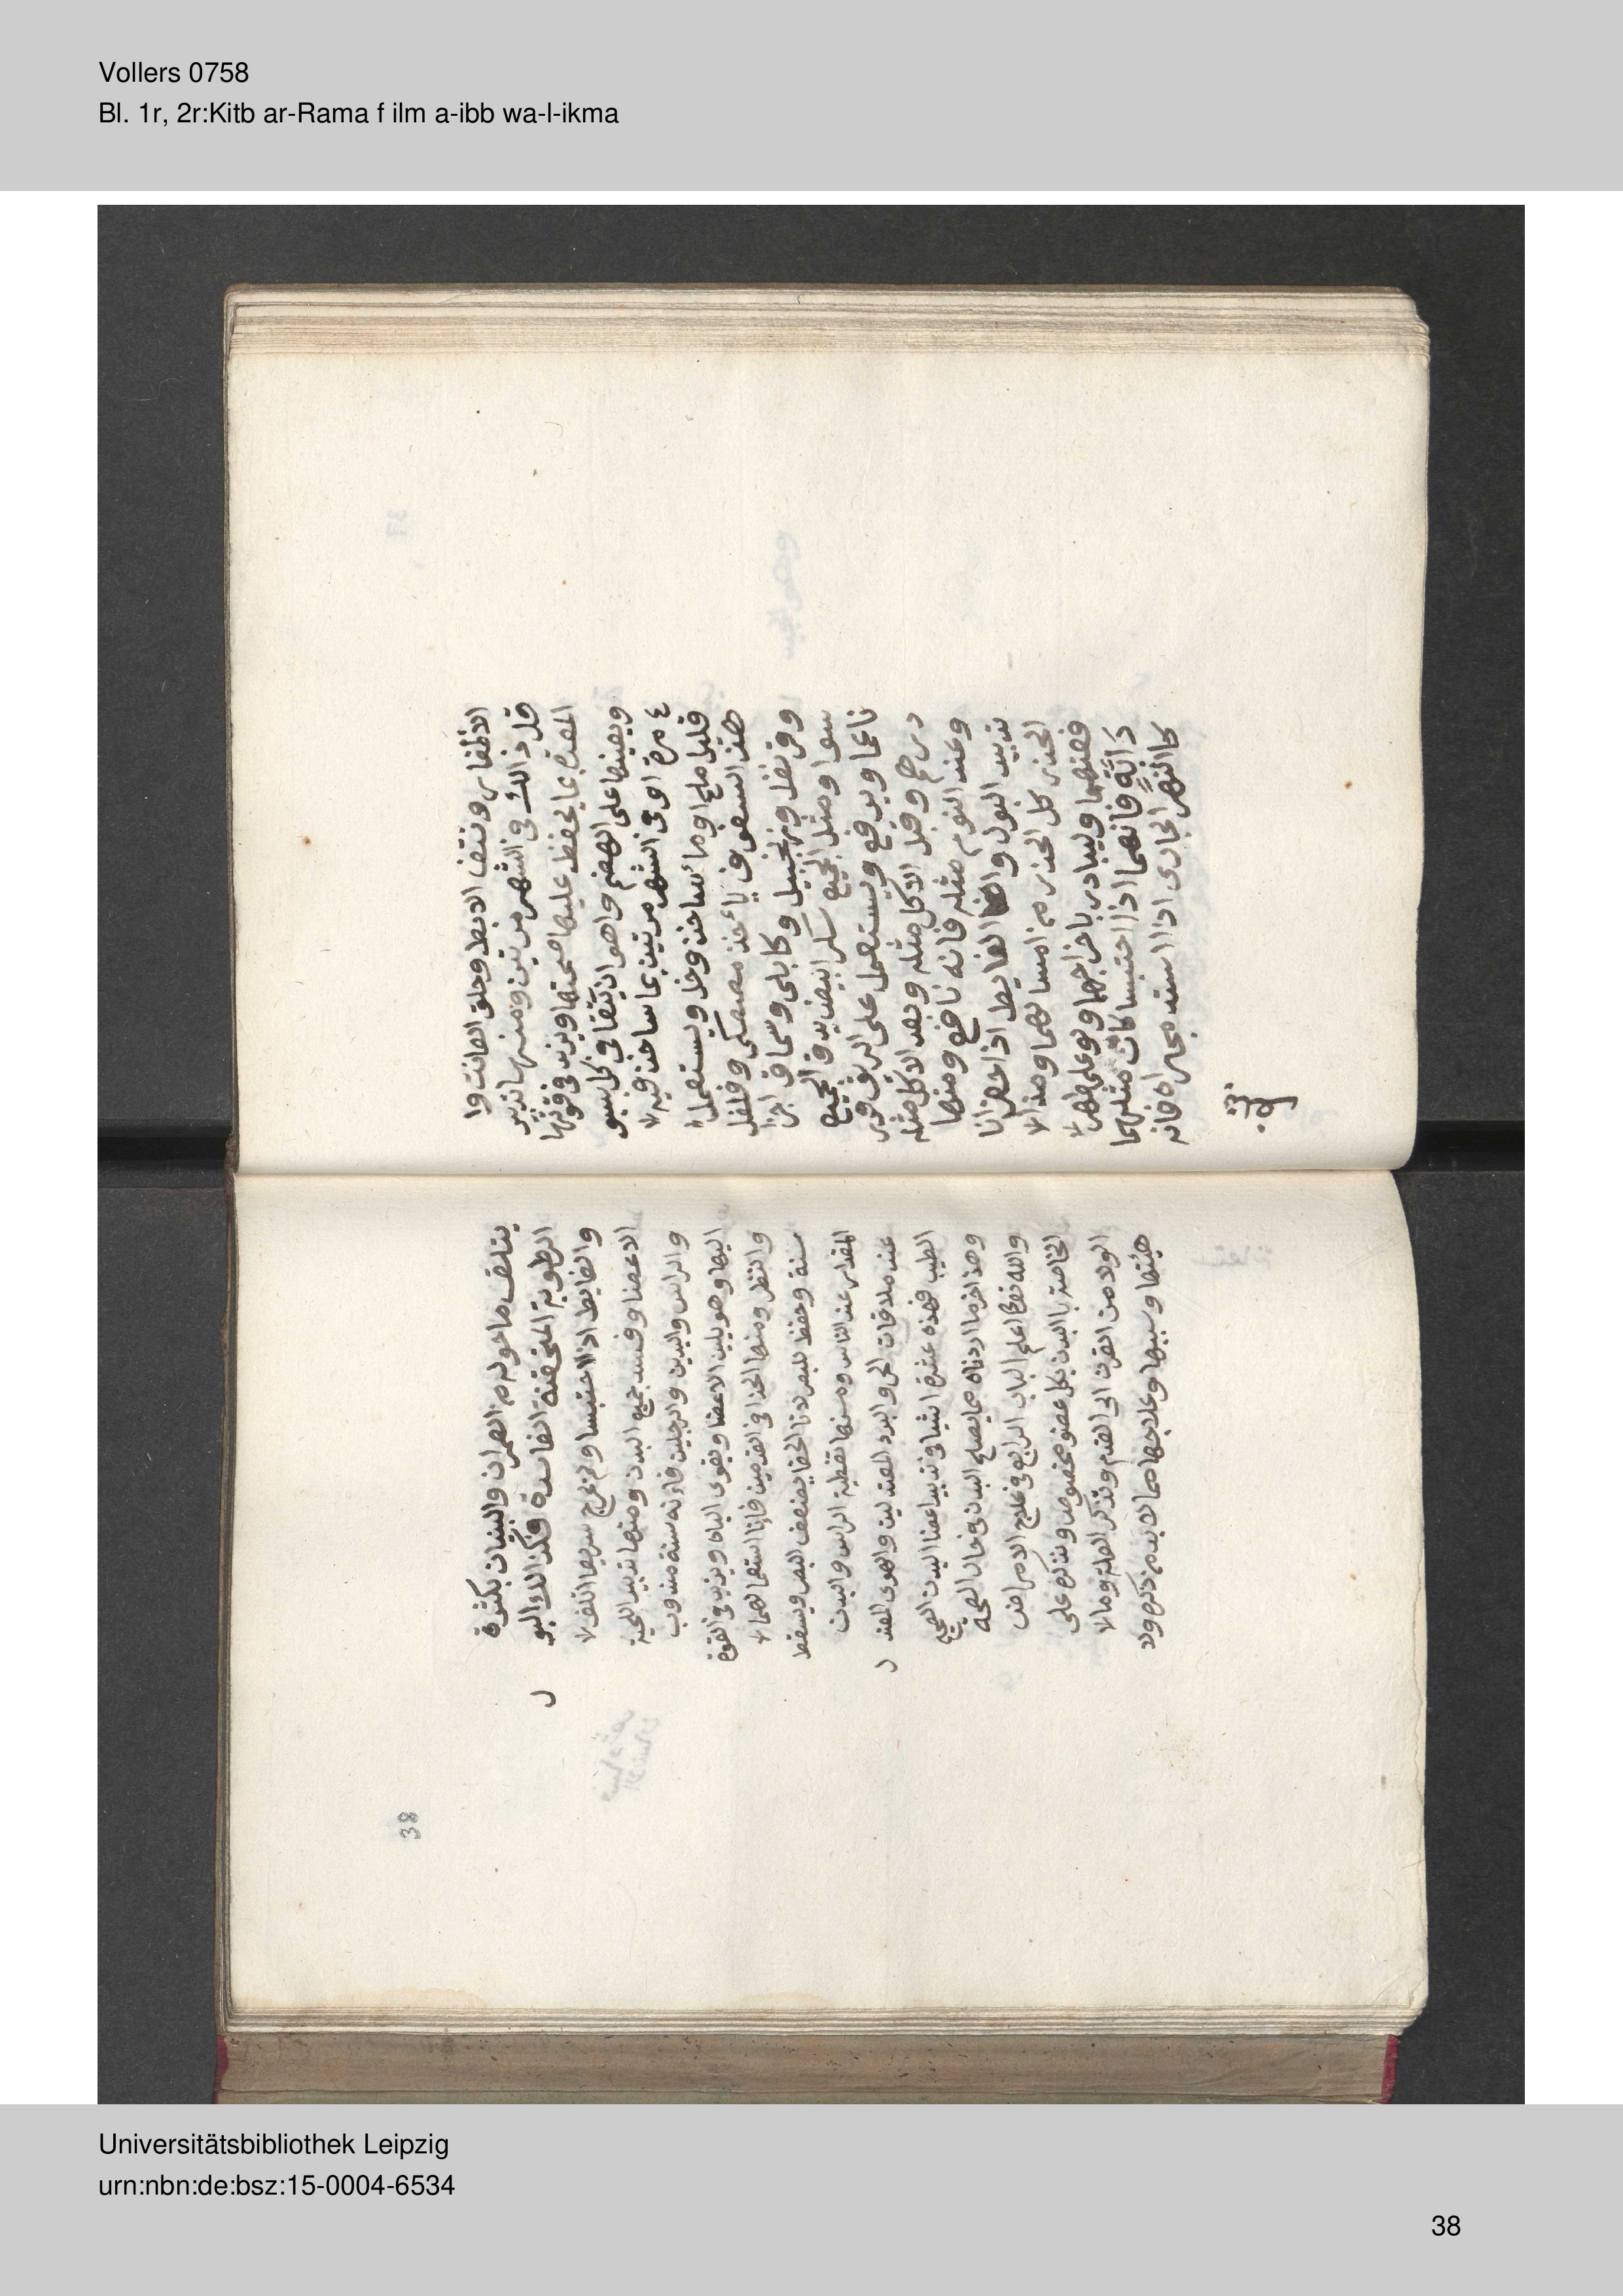 Vollers 0758
Bl. 1r, 2r:Kitb ar-Rama f ilm a-ibb wa-l-ikma
الاظفار ونتف الابط وحلق العانت وا
قل ذالك في الشهر مرتين ومنها تدبير
المعدة بما يحفظ عليها صحتها ويزيد في قوتها
ويعينها على الهضم واهو ان يتقا في كل سبو
ع مرة او في الشهر مرتين بما ساخن فيه
قليل ملح او مائ ساخن وخل ويستعمل
هذ السفوف ياءخذ مصطكى وفلفل
وقرنفل وزنجبيل وكابلى وسماق اجزا
سوا ومثل الجميع سكر ابيض يدق الجميع
ناعما ويرفع ويستعمل على الريق قدر
درهم وقبل الاكل مثله وبعد الاكل مثله
وعند النوم مثله فانه نافع ومنها
تدبير البول والغايط اذا حضرانا
الحذر كل الحذر من امساكهما ومدا
فعتهما وليبادر باخراجهما ولو على ظهر
دَابَّةٍ فانهما اذا احتبسا كان مثلهما
كاالنهر الجارى اذا استد مجراه فانه
يتلف ما حوله من العمران والبنيان بكثرة
الرطوبة المتحقنة الفاسدة فكذالك البو
ل
والغايط اذا احتبسا ولم يخرج سريعا اتلف
الاعضا وفسد جميع البدن ومنها تدبير اللحية
والراس واليدين والرجلين فاءنه سنة مندوب
اليها وهو يلين الاعضا ويقوى الباه ويزيد في القوة
والنظر ومنها الحذا في القدمين فاءنا استعمالهما
سنة وحفظ للبصر لانا الحفا يضعف البصر ويسقط
المقدار عند الناس ومنها تغطية الراس والبدن
عند ملاقات الحر والبرد المعتدلين والهوى المعتد
ل
الطيب فهذه عشرة اشيا في تدبير اعضا البدن الصحيح
وهذ اخر ما اردناه مما يصلح البدن في حال الصحة
والله تعالى اعلم الباب الرابع في علاج الامراض
الخاصة باالبدن بكل عضو مخصوص ونذكره على
الولا من القرن الى القدم ونذكر العلة وما
هيئتها وسببها وعلاجها مما لا بد من ذكره ولا
38
Universitätsbibliothek Leipzig
urn:nbn:de:bsz:15-0004-6534
38